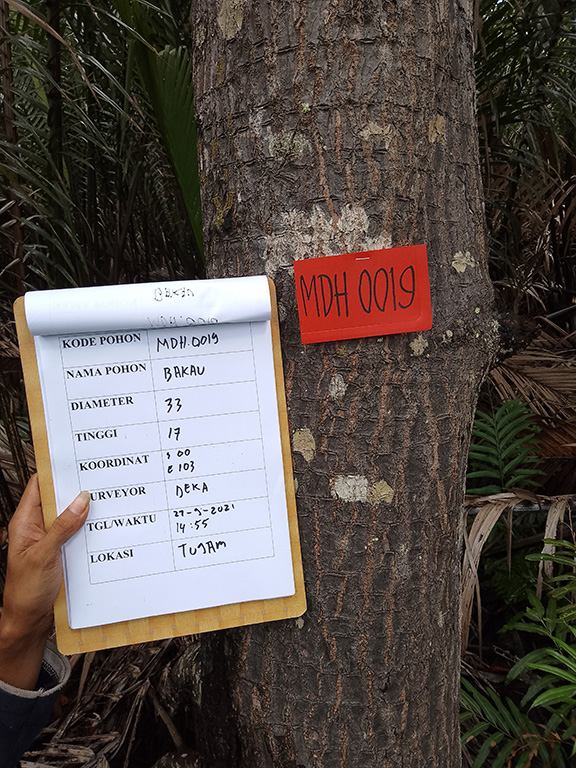 MDH 0019
KODE POHON MDH.0019
NAMA POHON BAKAU
DIAMETER 33
TINGGI 17
KOORDINAT S 00
E 103
URVEYOR DEKA
TGL/WAKTU 27-9-2021
14:55
LOKASI TUJAM